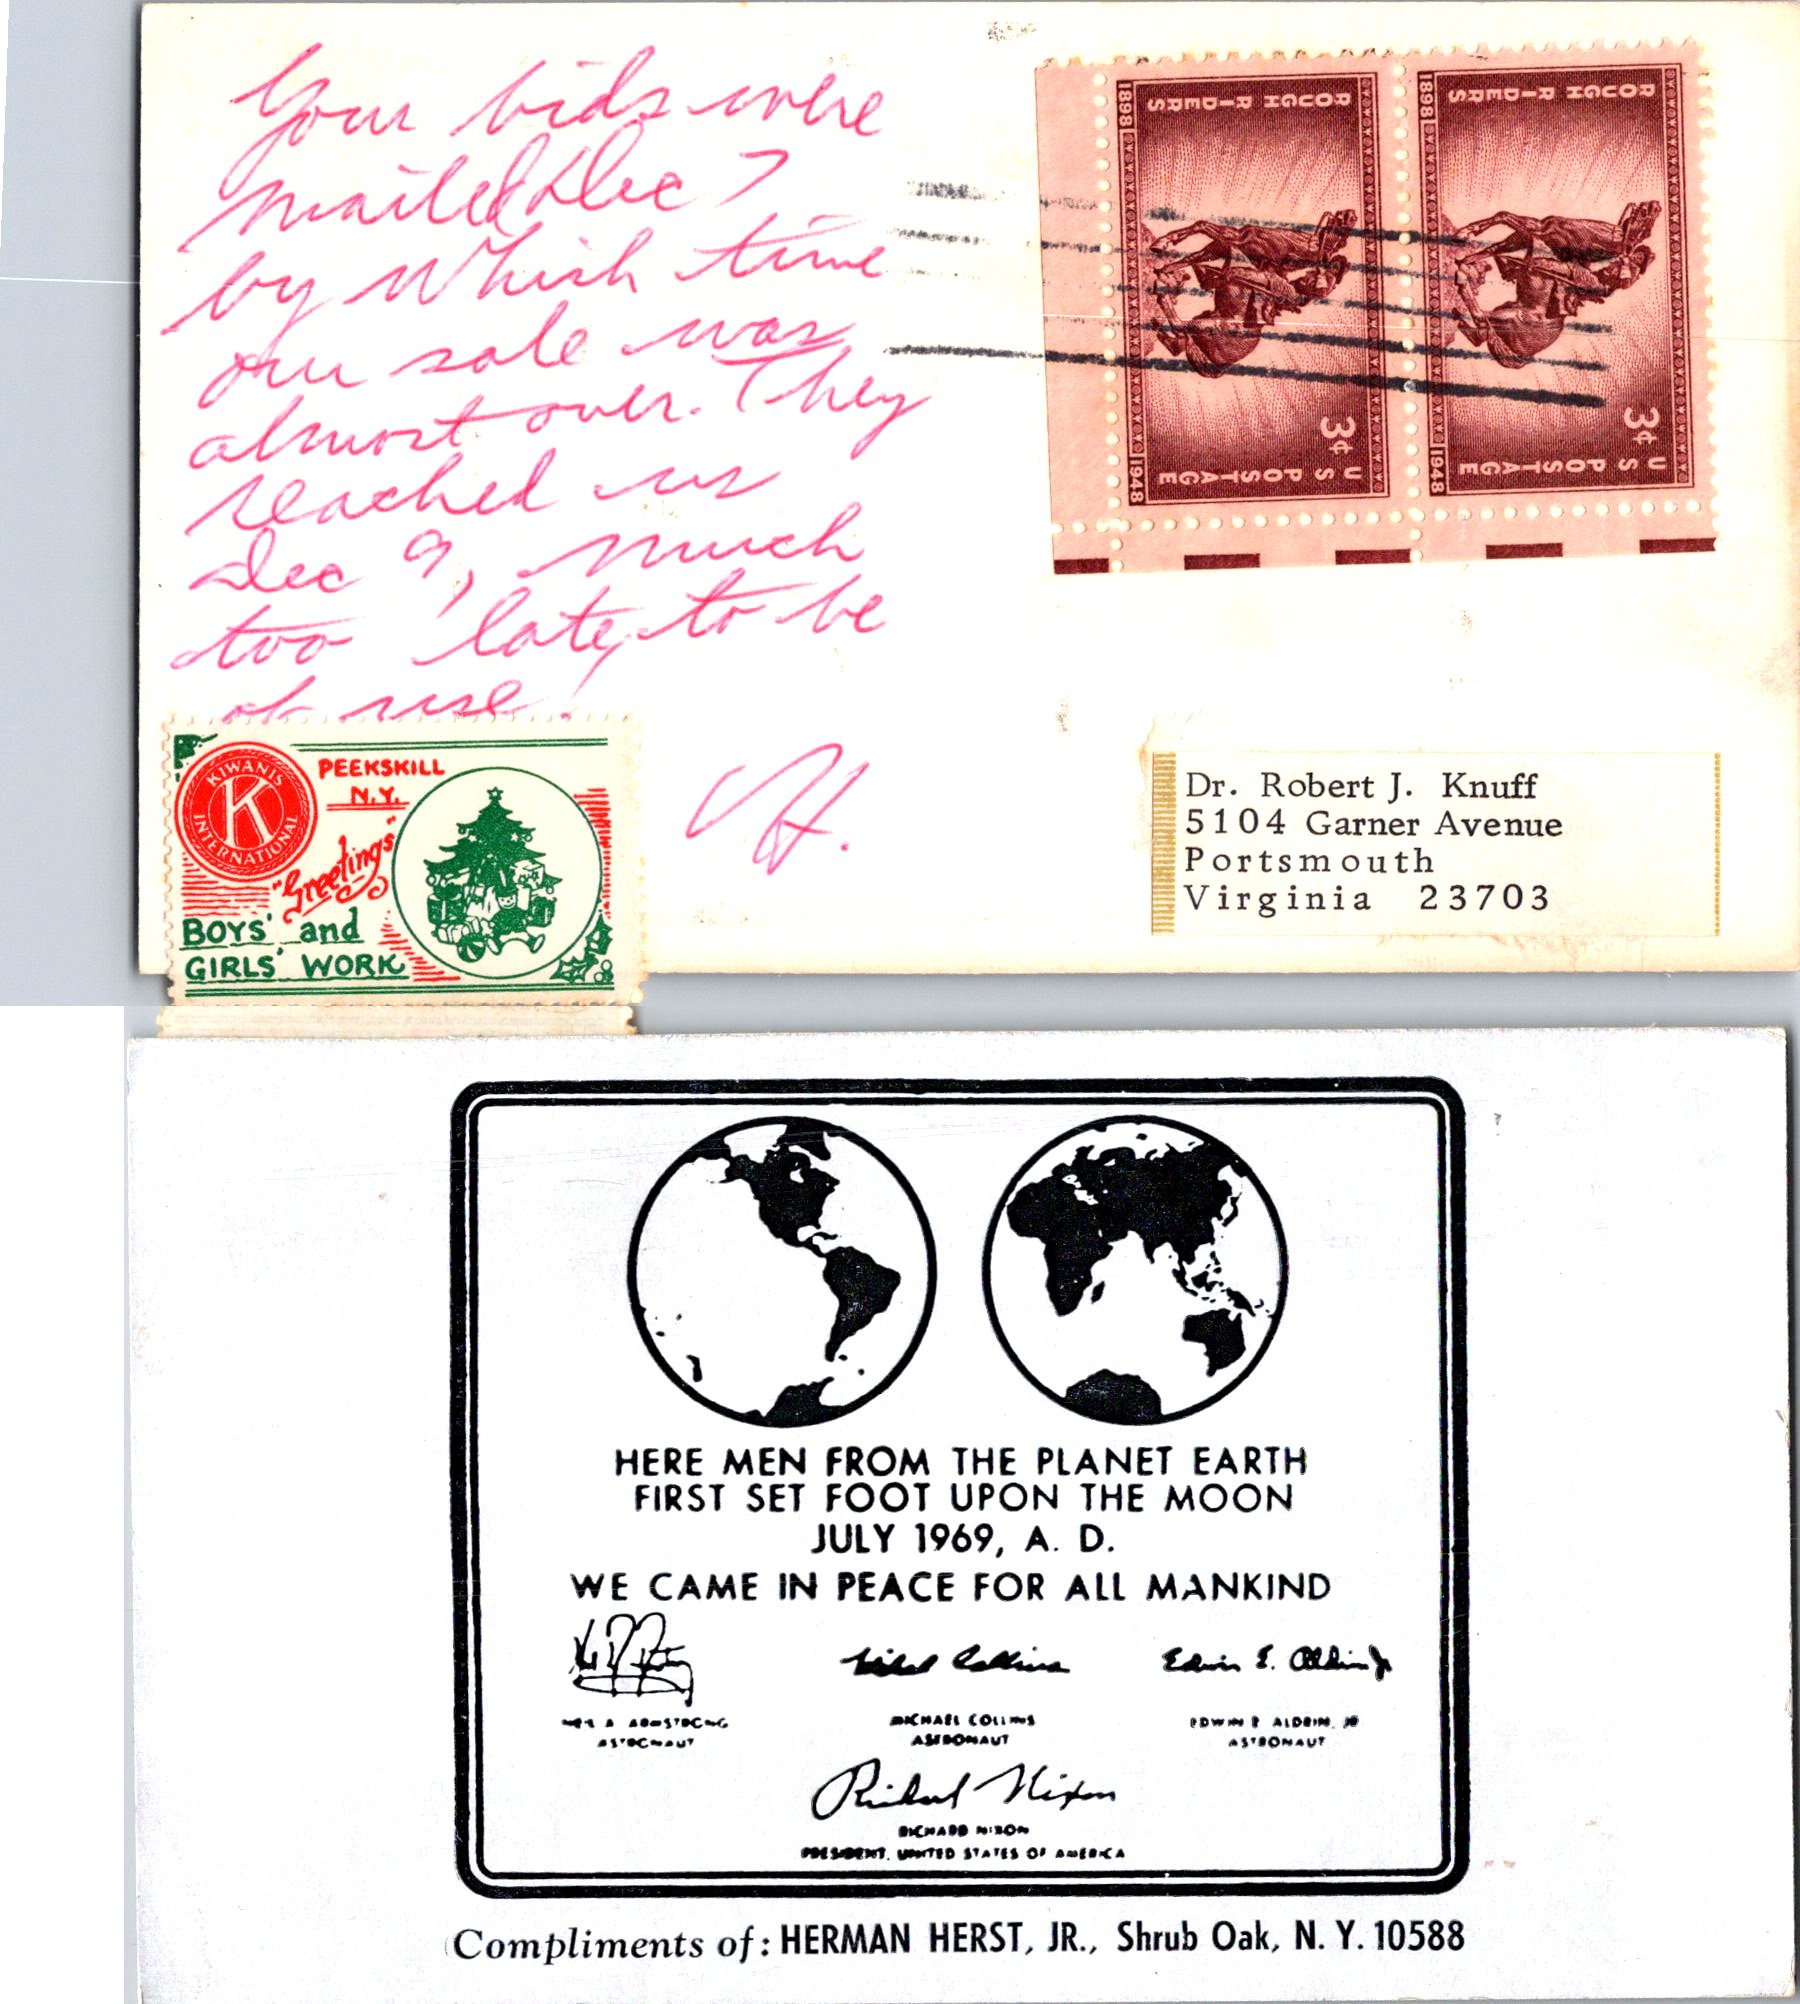 Your bids were
mailed Dec 7
by which time
our sale was
almost over. They
reached us
Dec 9, much
too late, to be
of use.
H.
ROUGH RIDERS
1898
1948
3¢
U S POSTAGE
ROUGH RIDERS
1898
1948
3¢
U S POSTAGE
KIWANIS
K
INTERNATIONAL
PEEKSKILL
N.Y.
"Greetings"
BOYS' and
GIRLS' WORK
Dr. Robert J. Knuff
5104 Garner Avenue
Portsmouth
Virginia 23703
HERE MEN FROM THE PLANET EARTH
FIRST SET FOOT UPON THE MOON
JULY 1969, A. D.
WE CAME IN PEACE FOR ALL MANKIND
Michael Collins
Edwin E. Aldrin Jr
NEIL A ARMSTRONG
ASTRONAUT
MICHAEL COLLINS
ASTRONAUT
EDWIN E ALDRIN, JR
ASTRONAUT
Richard Nixon
RICHARD NIXON
PRESIDENT, UNITED STATES OF AMERICA
Compliments of: HERMAN HERST, JR., Shrub Oak, N. Y. 10588